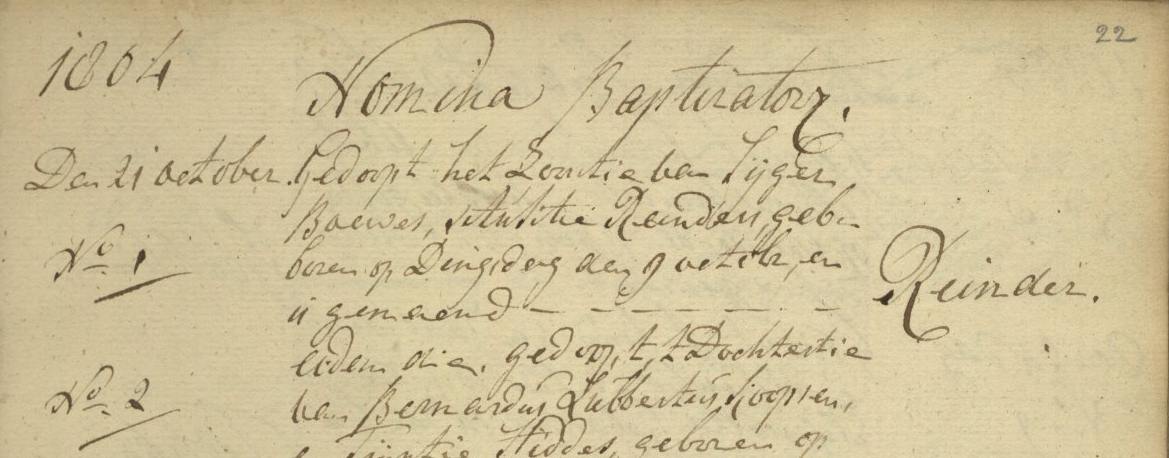 22
1804
Nomina Baptizator.
Den 21 october. Gedoopt het Zoontie van Tijger
Boewes, Reinders, geb-
No 1
boren op Dingsdag den 9 octobr, en
is genaemd - - - - - -
Reinder.
eidem die. gedoopt, t Dochtertie
No 2
van Bernardus Lubbertus Koopsen,
Hiddes, geboren op